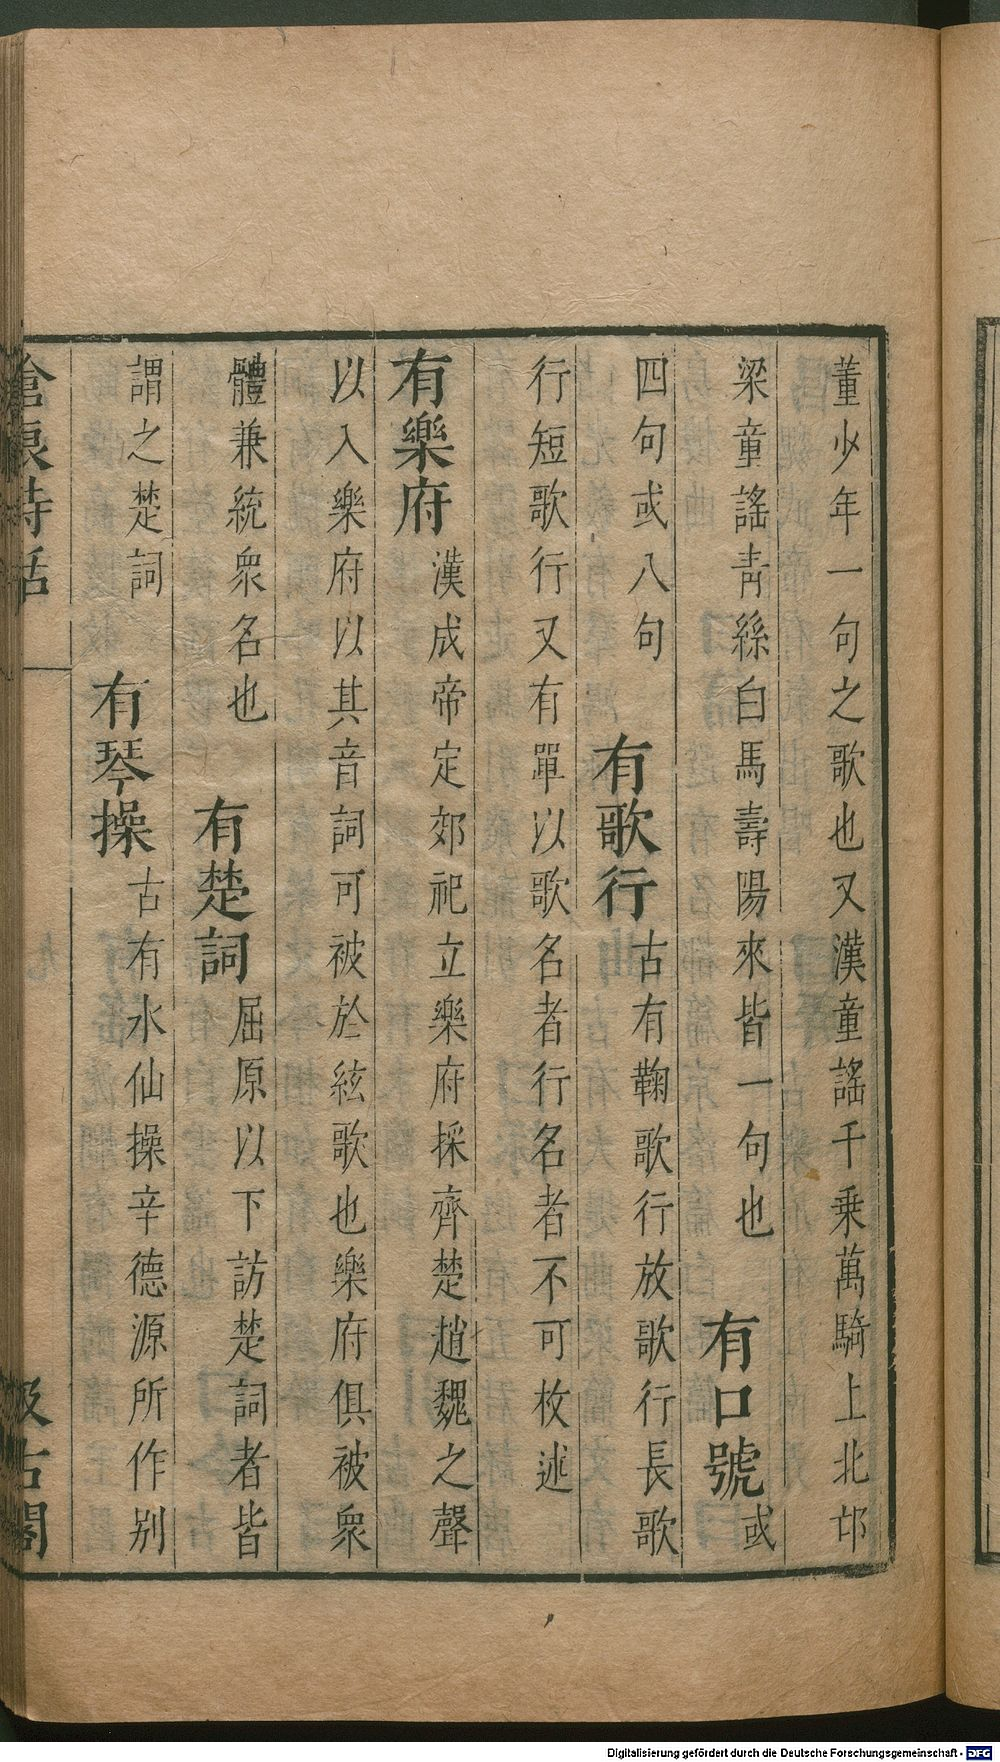 董少年一句之歌也又漢童謠千乗萬騎上北邙
梁童謠青絲白馬壽陽來皆一句也 有口號或
四句或八句 有歌行古有鞠歌行放歌行長歌
行短歌行又有單以歌名者行名者不可枚述
有樂府漢成帝定郊祀立樂府採齊楚趙魏之聲
以入樂府以其音詞可被於絃歌也樂府俱被衆
體兼統衆名也 有楚詞屈原以下訪楚詞者皆
謂之楚詞 有琴操古有水仙操辛德源所作别
滄浪詩話
汲古閣
Digitalisierung gefördert durch die Deutsche Forschungsgemeinschaft - DFG